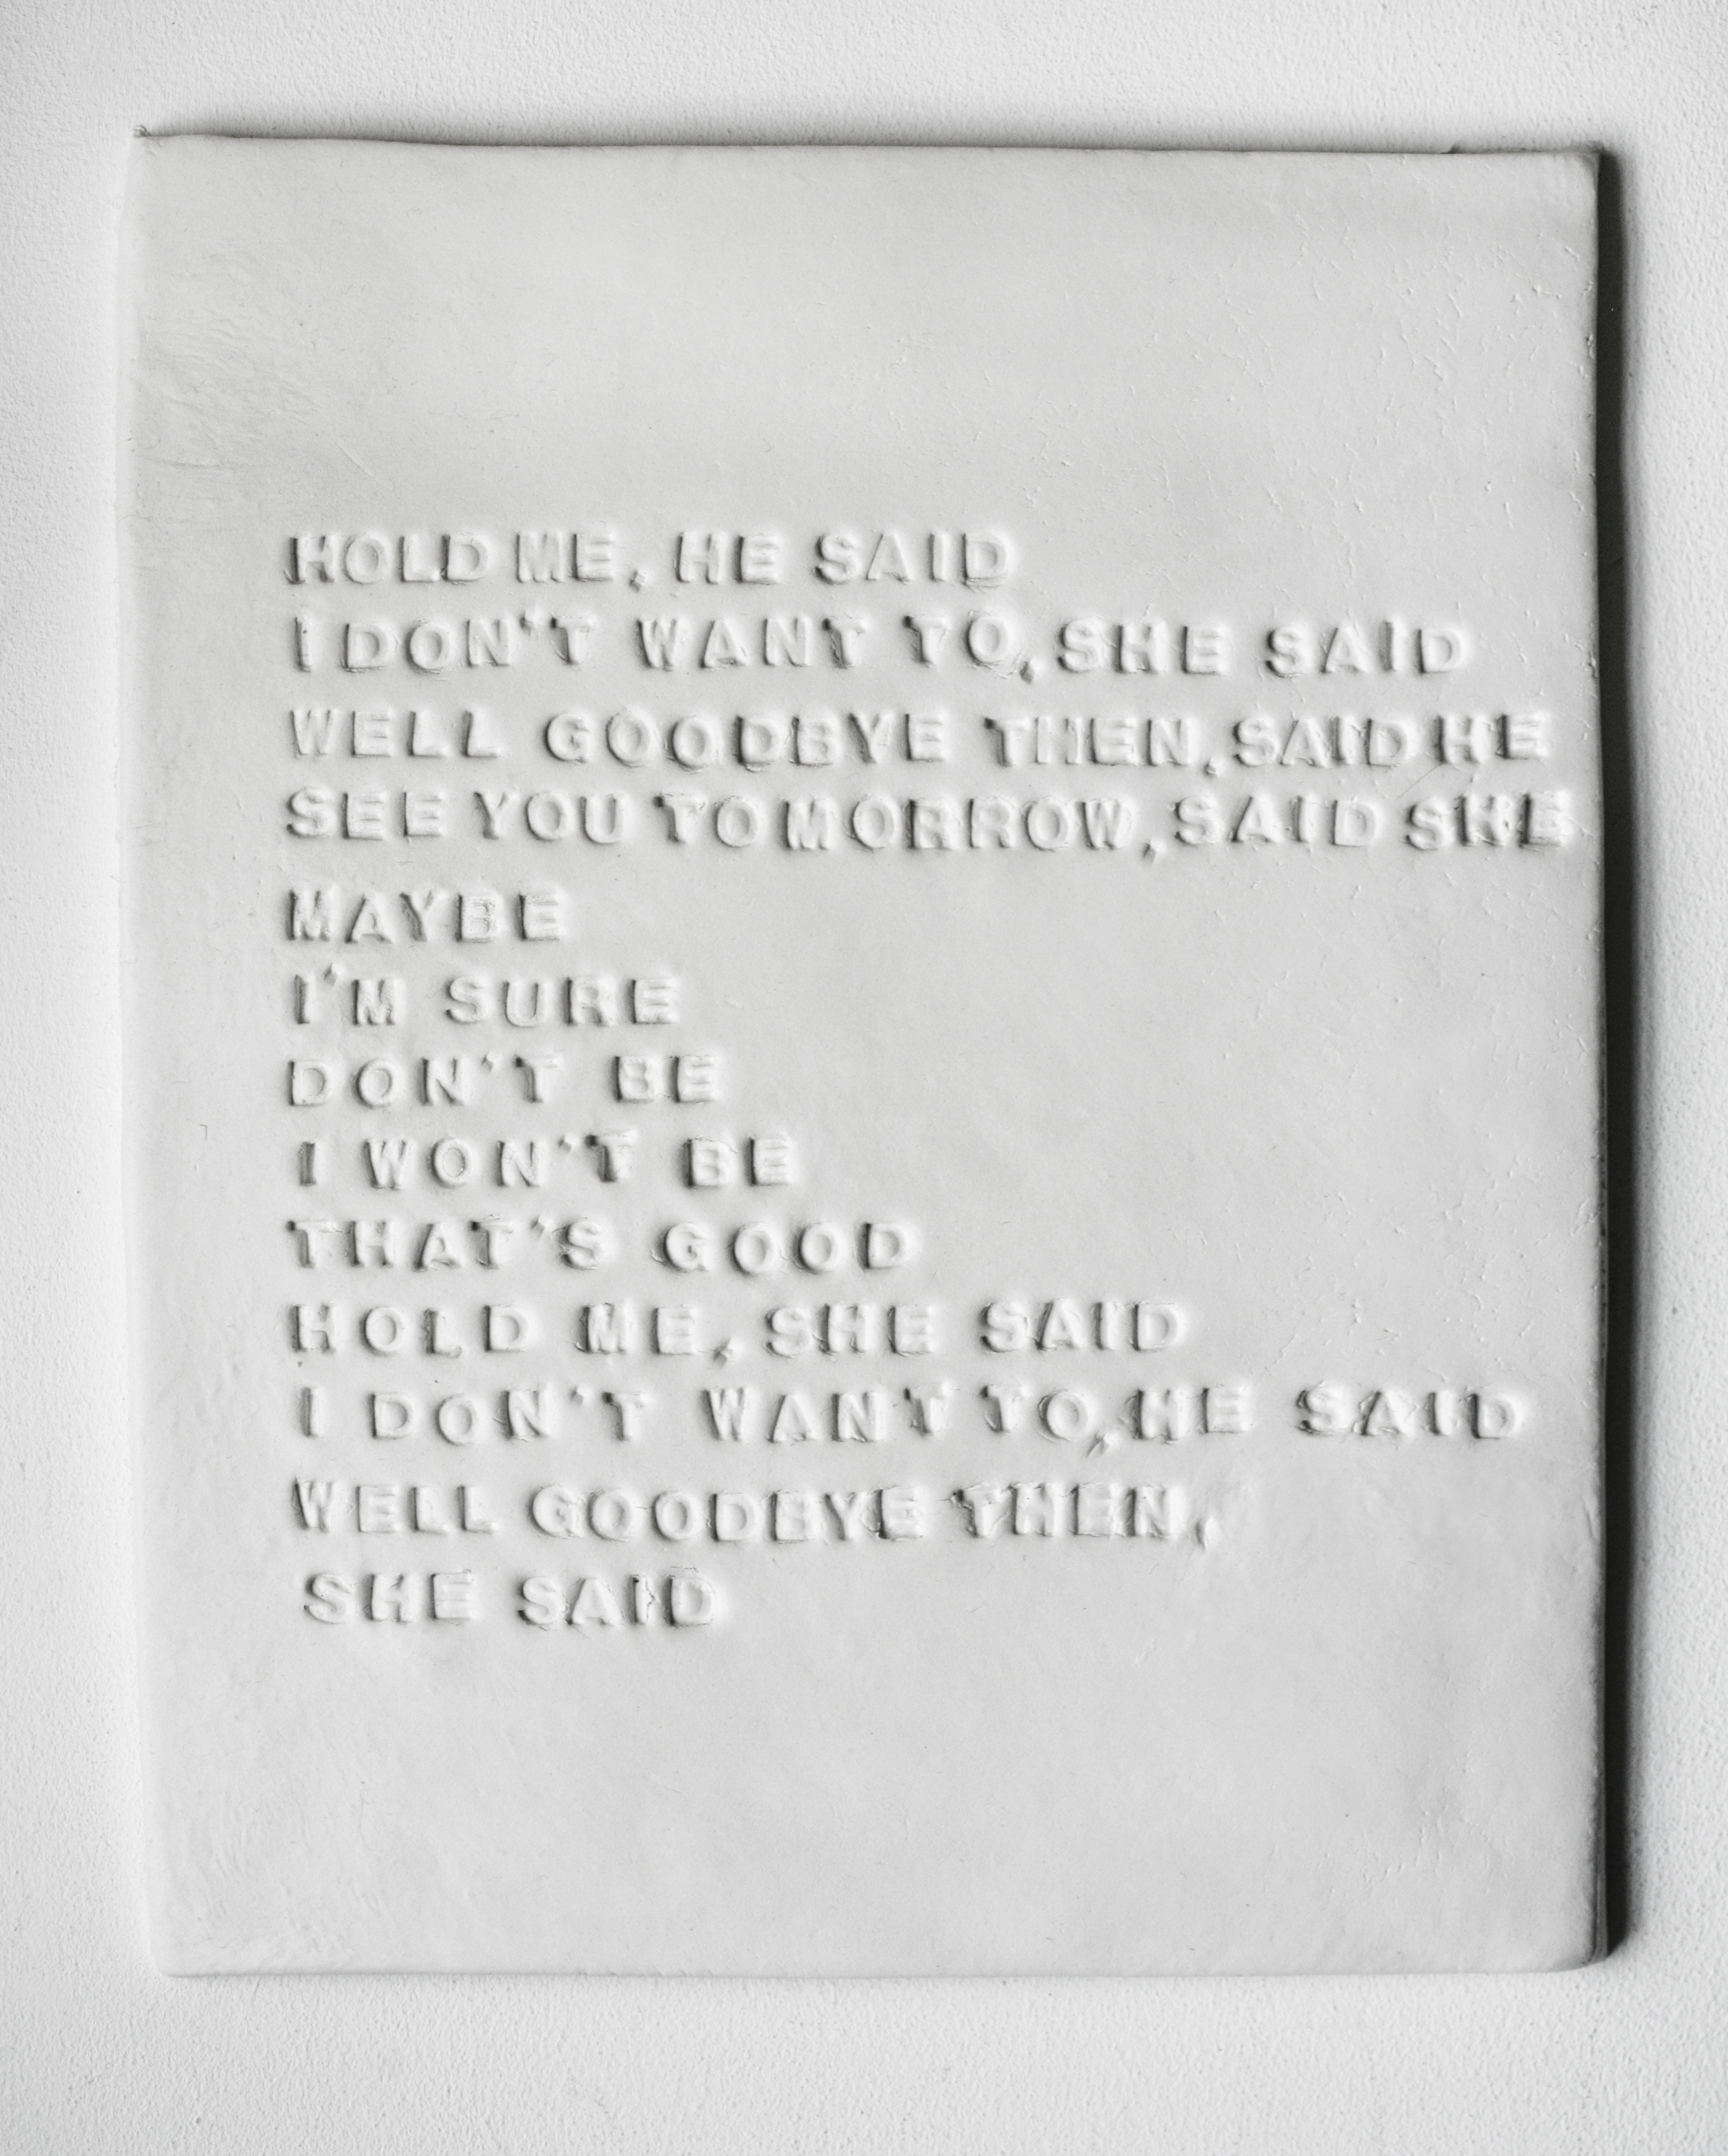 HOLD ME, HE SAID
I DON'T WANT TO, SHE SAID
WELL GOODBYE THEN, SAID HE
SEE YOU TOMORROW, SAID SHE
MAYBE
I'M SURE
DON'T BE
I WON'T BE
THAT'S GOOD
HOLD ME, SHE SAID
I DON'T WANT TO, HE SAID
WELL GOODBYE THEN,
SHE SAID